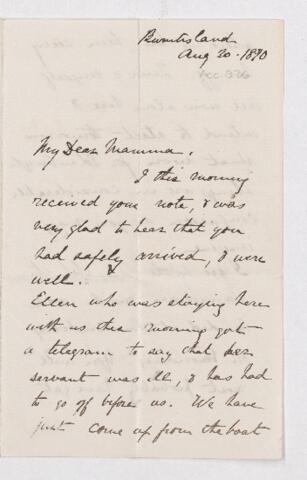 Burntisland
Aug 20 - 1890
Acc. 336
My Dear Mamma.
I this morning
received your note, & was
very glad to hear that you
had safely arrived, & were
well.
Ellen who was staying here
with us this morning got
a telegram to say that her
servant was ill, & has had
to go off before us. We have
just come up from the boat